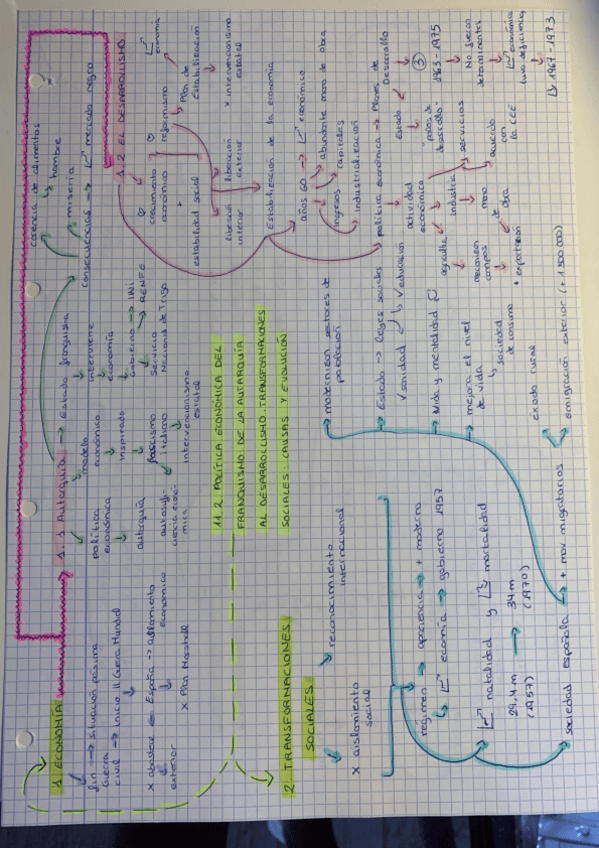 11.2. POLÍTICA ECONÓMICA DEL
FRANQUISMO: DE LA AUTARQUÍA
AL DESARROLLISMO. TRANSFORMACIONES
SOCIALES: CAUSAS Y EVOLUCIÓN
1. ECONOMÍA
fin → situación pésima
guerra
civil → Inicio II Guerra Mundial
x abastece en España → aislamiento
exterior económico
x Plan Marshall
1.1 Autarquía → Estado franquista
política
económica
autarquía
autosufi-
ciencia econó-
mica
modelo
económico
inspirado
fascismo
italiano
intervencionismo
estatal
interviene
economía
Gobierno → INI
→ RENFE
Servicio
Nacional de Trigo
consecuencias → mercado negro
miseria
hambre
carencia de alimentos
1.2 EL DESARROLLISMO
crecimiento
económico
+
estabilidad social
reformismo
economía
Plan de
Estabilización
liberación
interior
liberación
exterior
x intervencionismo
estatal
Estabilización de la economía
años 60 → económico
ingresos
capitales
abundante mano de obra
industrialización
política económica → Planes de
Desarrollo
actividad
económica
Estado
"polos de
desarrollo"
3
1963-1975
No fueron
determinantes
economía
tuvo deficiencias
1967-1973
agricultura
mecanizan
campos
+ exportación
industria
mano
de obra
servicios
acuerdo
con
la CEE
2. TRANSFORMACIONES
SOCIALES
x aislamiento
social
reconocimiento
internacional
régimen → apariencia → + moderno
economía → gobierno 1957
natalidad y mortalidad
29,4 m → 34 m
(1957) (1970)
sociedad española → + mov. migratorios
éxodo rural
emigración exterior (+ 1.500.000)
modernizan sectores de
población
Estado → leyes sociales
v sanidad v educación
Vida y mentalidad
mejora el nivel
de vida
sociedad
de consumo